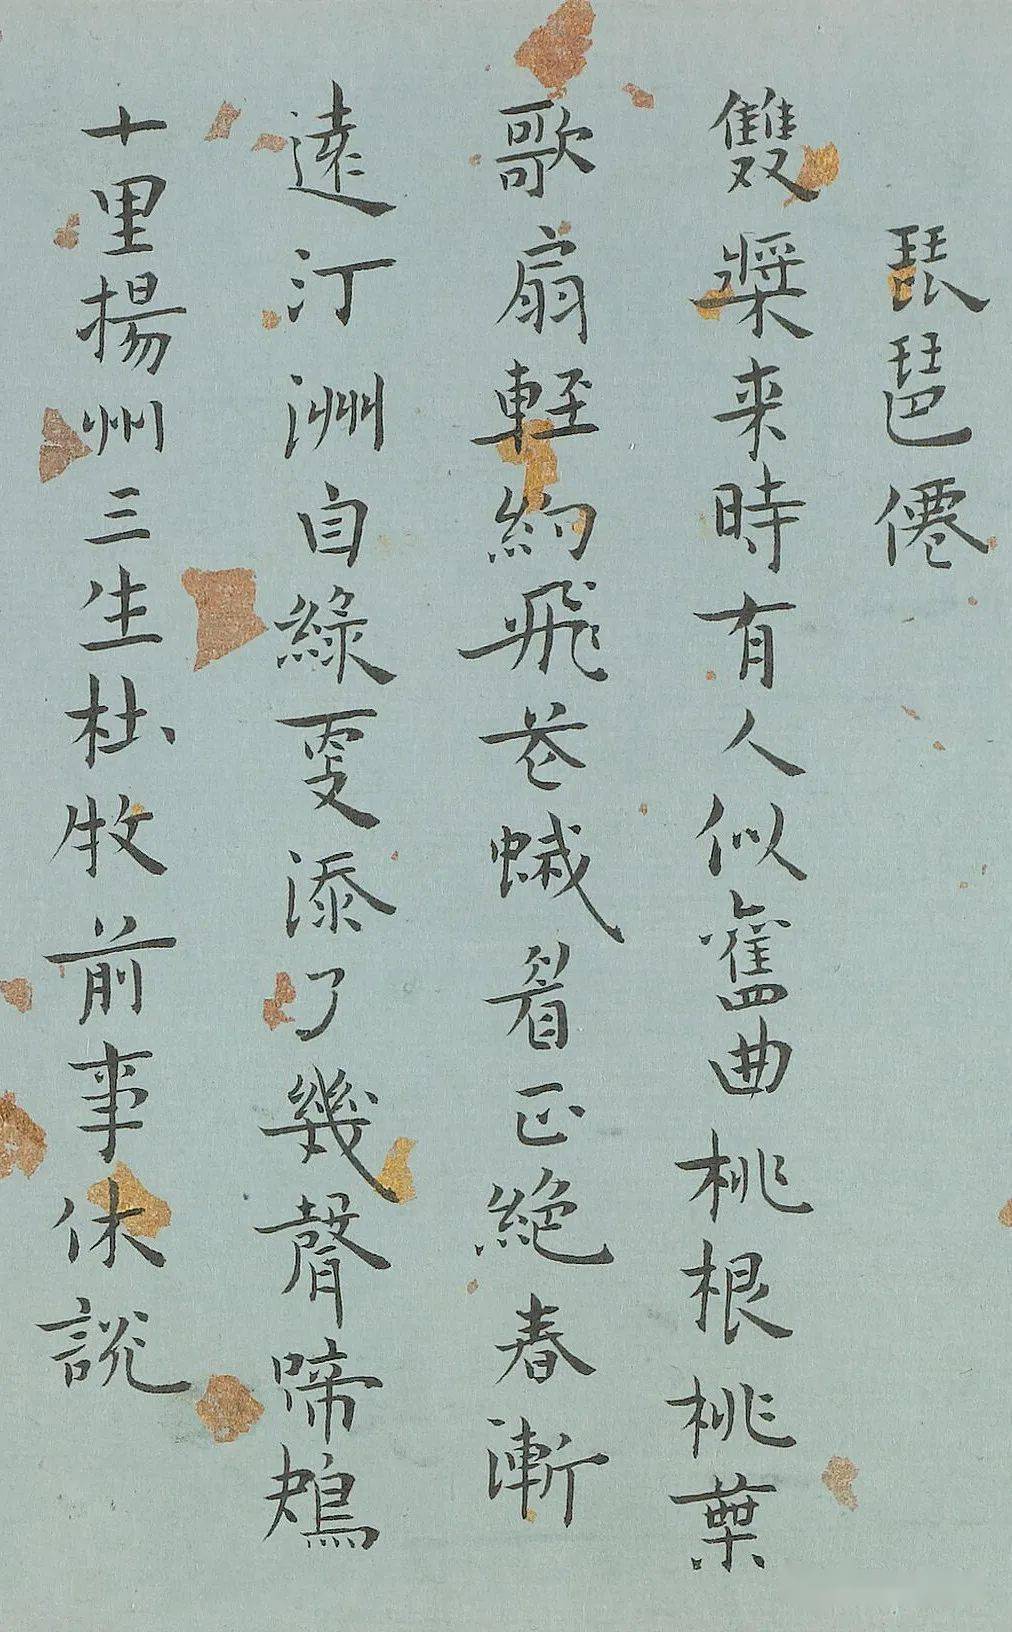 琵琶僊
雙槳来時有人似舊曲桃根桃葉
歌扇輕約飛花蛾眉正絕春漸
遠汀洲自綠更添了幾聲啼鴂
十里揚州三生杜牧前事休說